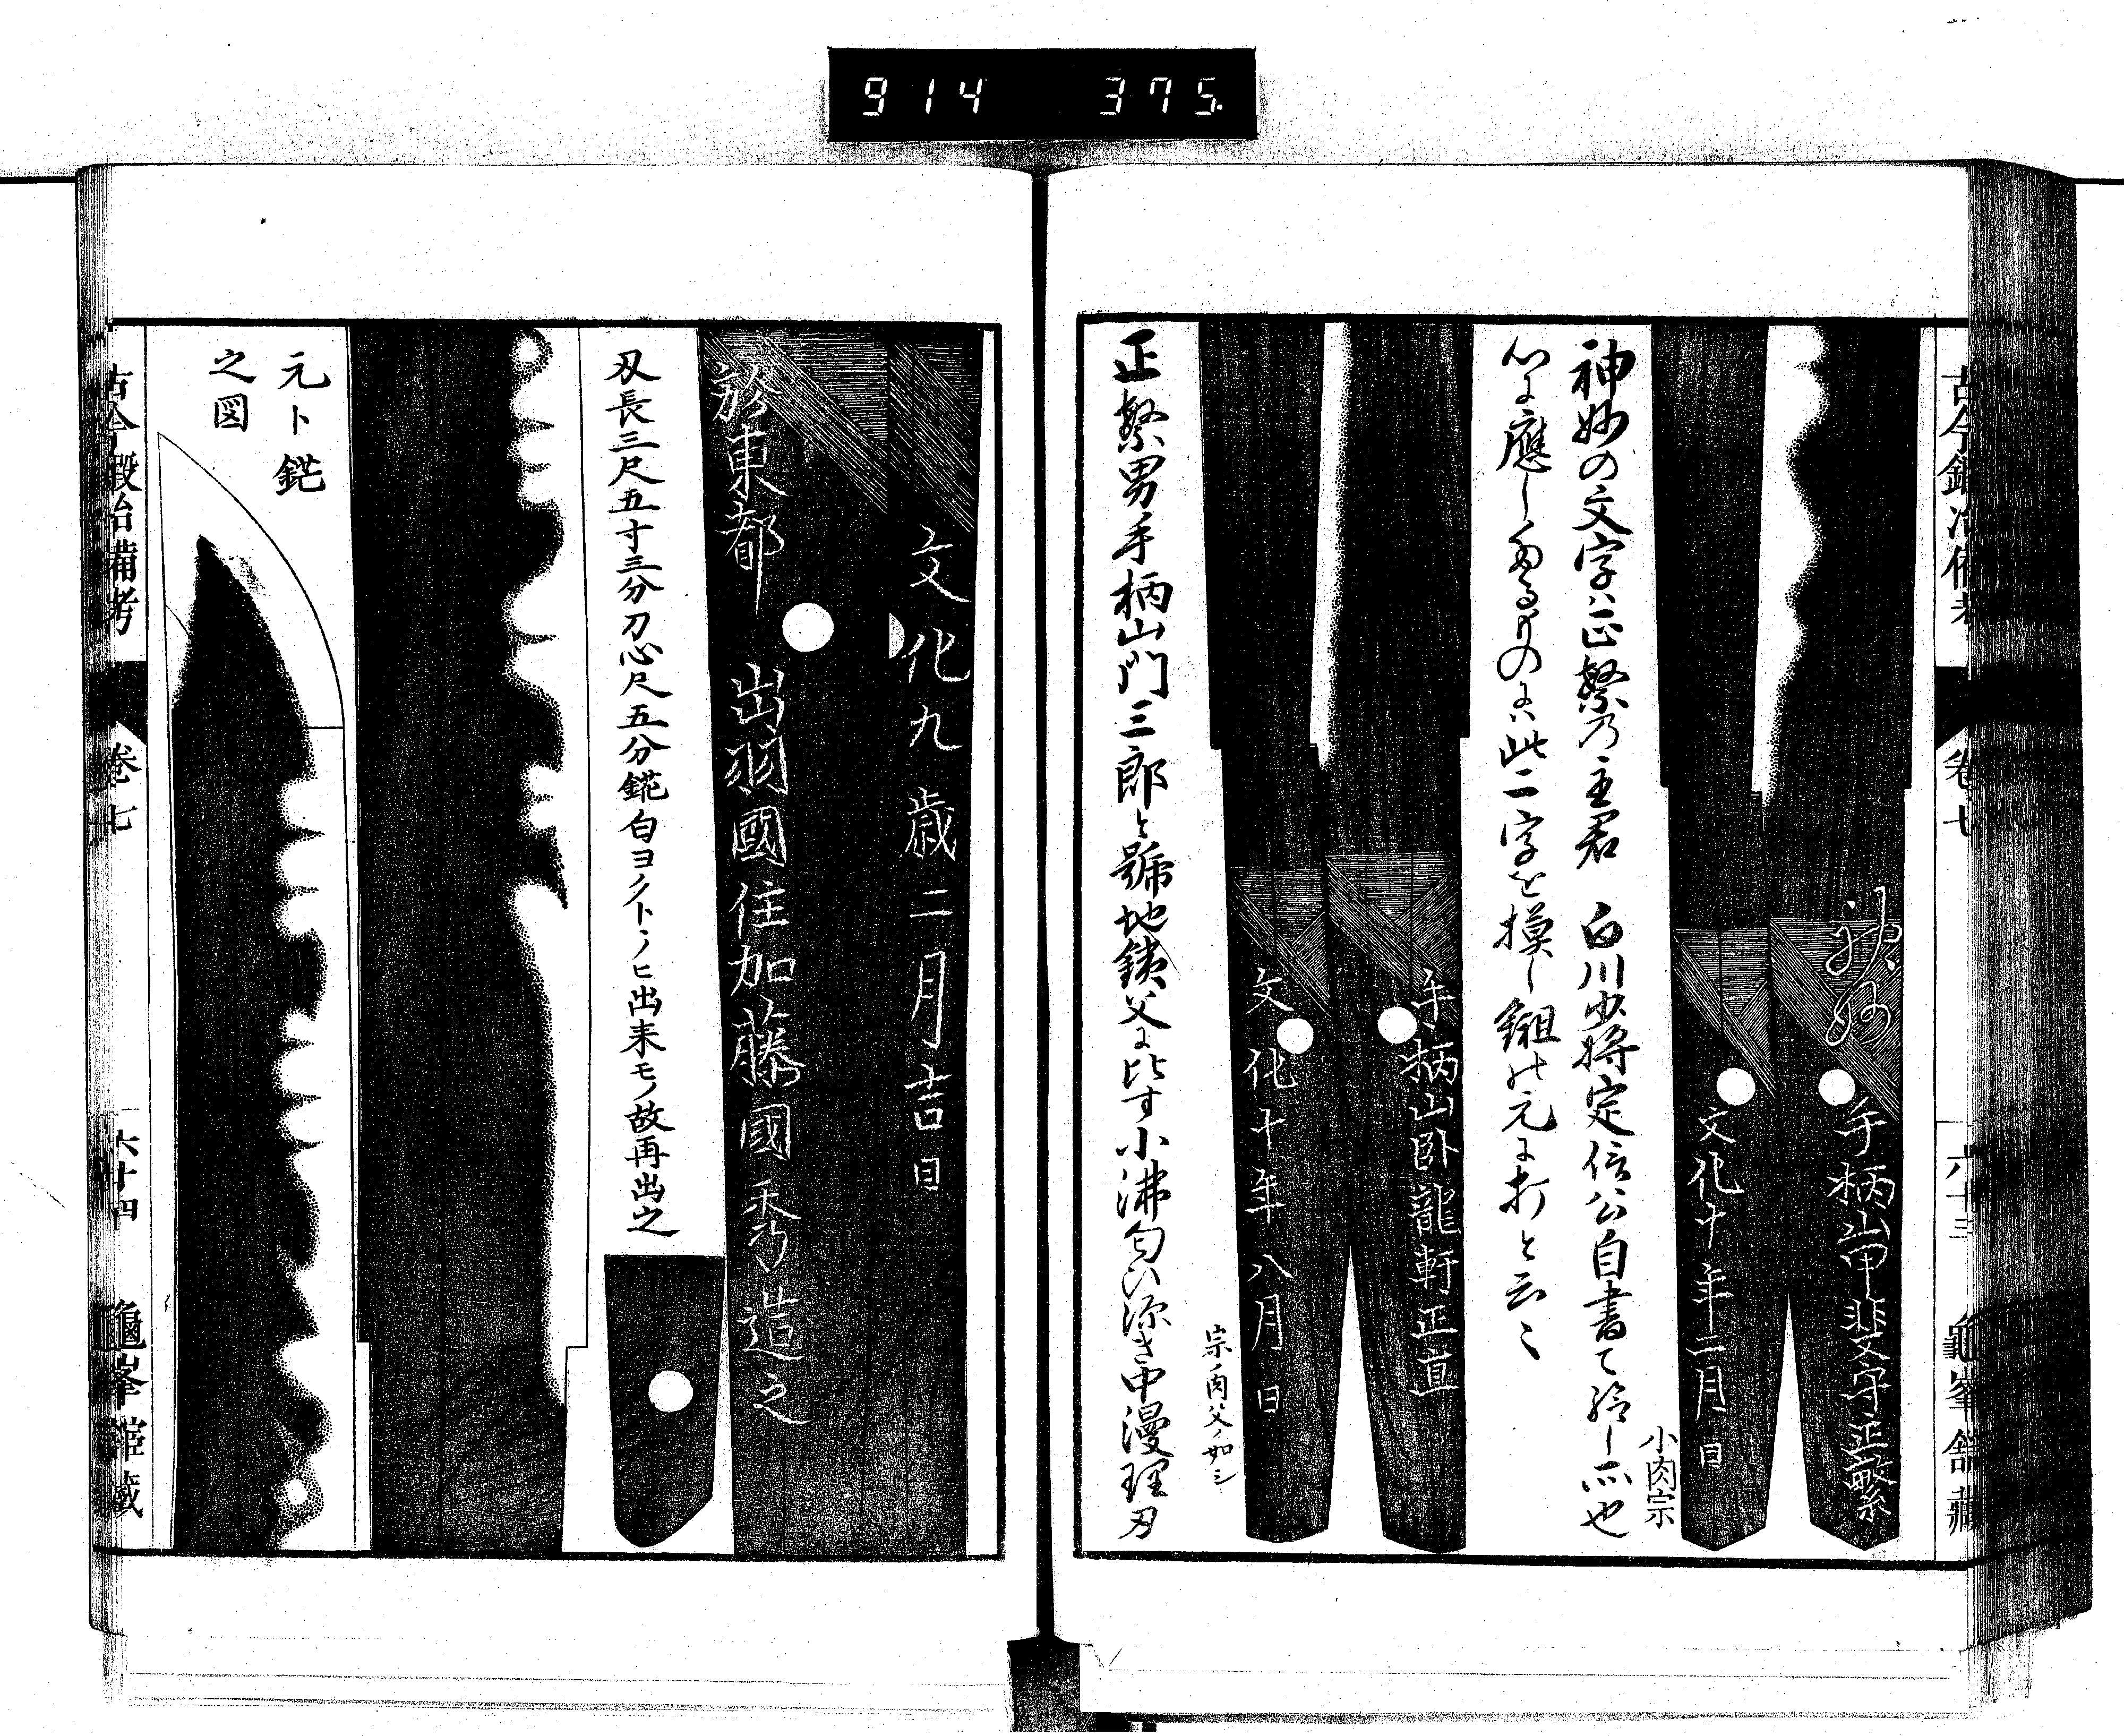 914 375
古今鍛冶備考
卷七
六十三
龜峯館藏
神妙
手柄山甲斐守正繁
文化十年二月日
小肉宗
神妙の文字ハ正繁乃主君 白川少将定信公自書て給し所也
心に應しゝるものにハ此二字を摸し鎺の元に打と云々
手柄山卧龍軒正直
文化十年八月日
宗肉父ノ如シ
正繁男手柄山門三郎と號地鉄父に比す小沸匂ひ深き中漫理刃
文化九歳二月吉日
於東都 出羽國住加藤國秀造之
刄長三尺五寸三分刀心尺五分鋩白ヨノトノヒ出来モノ故再出之
元ト鋩
之図
古今鍛冶備考
卷七
六十四
龜峯館藏